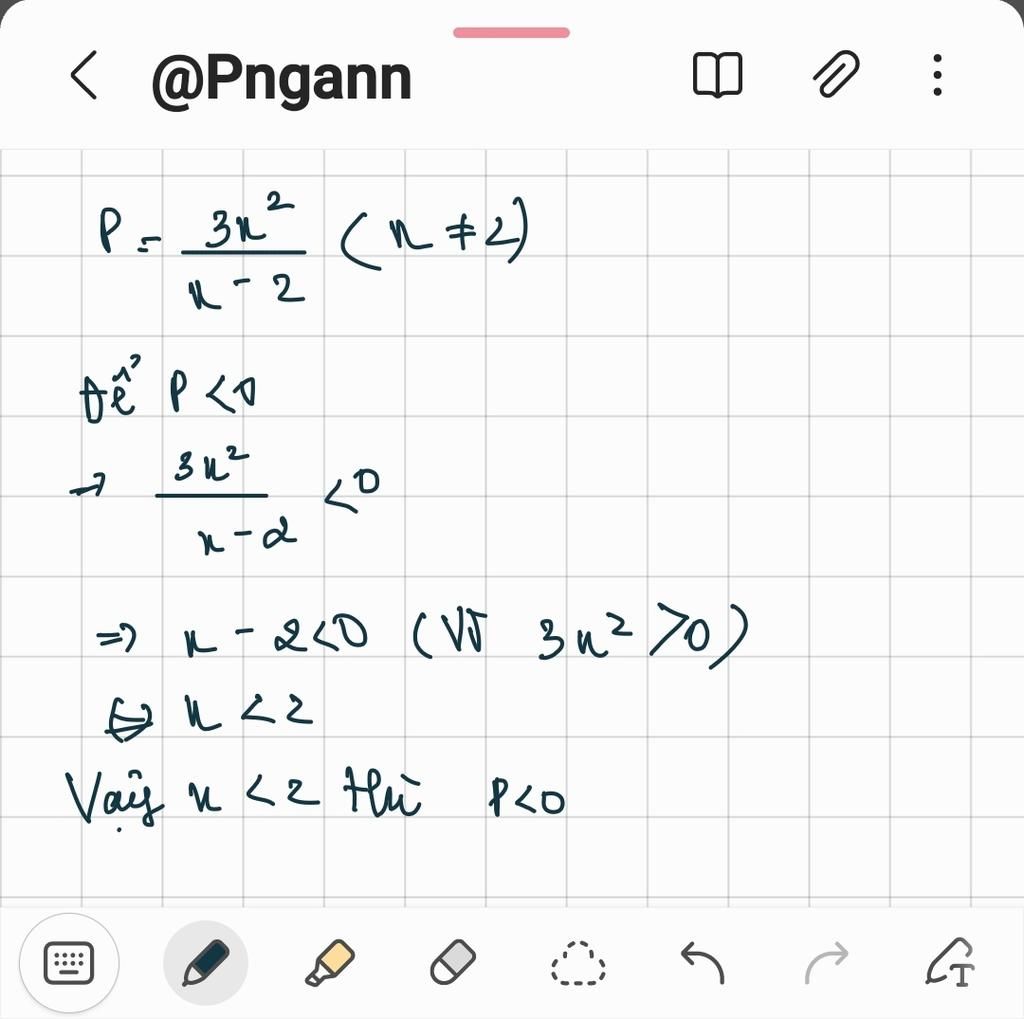 @Pngann
P = 3x² / x - 2 (x ≠ 2)
Để P < 0
→ 3x² / x - 2 < 0
=> x - 2 < 0 (Vì 3x² > 0)
⇔ x < 2
Vậy x < 2 thì P < 0
T